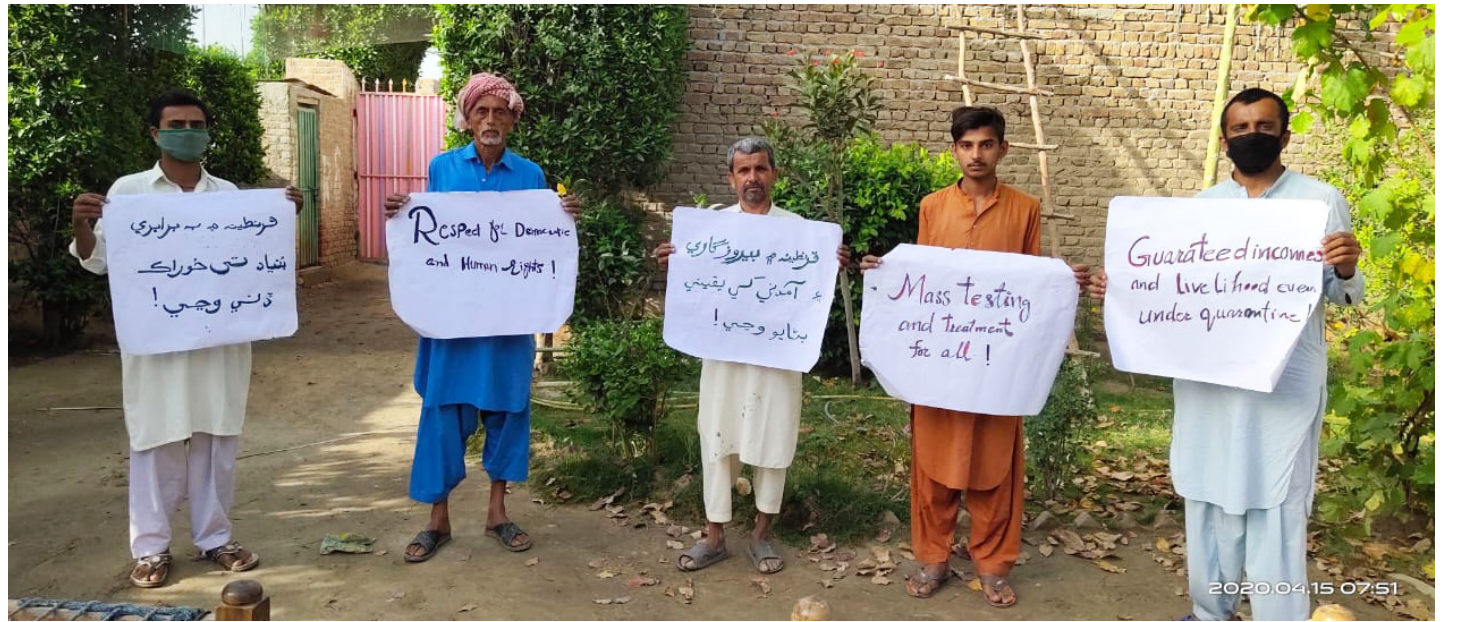 قرنطينه ۾ به برابري
بنياد تي خوراڪ
ڏني وڃي!
Respect for Democratic
and Human Rights !
قرنطينه ۾ بيروزگاري
۽ آمدني کي يقيني
بنايو وڃي!
Mass testing
and treatment
for all !
Guarateed incomes
and livelihood even
under quarantine!
2020.04.15 07:51